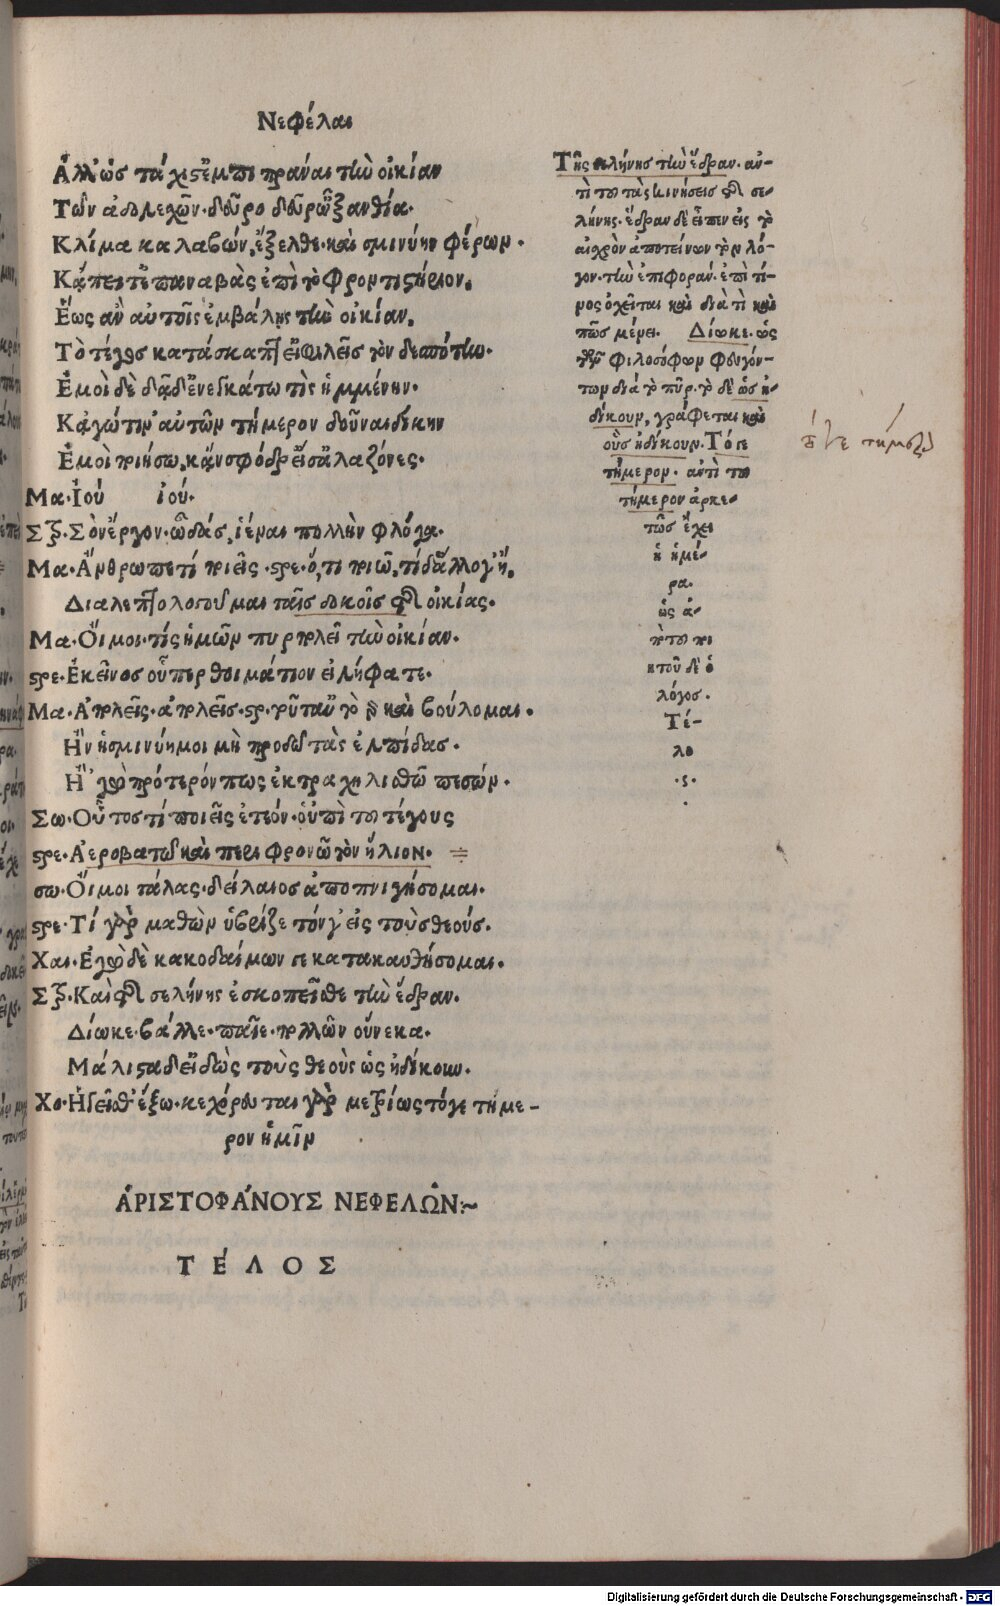 Νεφέλαι
Ἀλλ' ὡς τάχιστ' ἐμπιπράναι τὴν οἰκίαν
Τῶν ἀδολεχῶν· δεῦρο δεῦρ' ὦ ξανθία·
Κλίμακα λαβών, ἔξελθε· καὶ σμινύην φέρων·
Κἄπειτ' ἐπαναβὰς ἐπὶ τὸ φροντιστήριον.
Ἕως ἂν αὐτοῖς ἐμβάλῃς τὴν οἰκίαν.
Τὸ τέγος κατάσκαπτ' εἰ φιλεῖς τὸν δεσπότην.
Ἐμοὶ δὲ δᾷδ' ἐνεγκάτω τὶς ἡμμένην·
Κἀγώ τιν' αὐτῶν τήμερον δοῦναι δίκην
Ἐμοὶ ποιήσω, κἂν σφόδρ' εἶσ' ἀλαζόνες·
Μα· Ἰού ἰού·
Στρ. Σὸν ἔργον· ὦ δάς, ἱέναι πολλὴν φλόγα·
Μα· Ἄνθρωπε τί ποιεῖς· στρε· ὅ, τι ποιῶ, τί δ' ἄλλο γ' ἤ.
Διαλεπτολογοῦμαι ταῖς δοκοῖς τῆς οἰκίας·
Μα· Οἴμοι· τίς ἡμῶν πυρπολεῖ τὴν οἰκίαν·
στρε· Ἐκεῖνος οὗπερ θοἰμάτιον εἰλήφατε·
Μα· Ἀπολεῖς· ἀπολεῖς· στρ· τοῦτ' αὐτὸ γὰρ καὶ βούλομαι·
Ἢν ἡ σμινύη μοι μὴ προδῷ τὰς ἐλπίδας·
Ἢ 'γὼ πρότερόν πως ἐκτραχηλισθῶ πεσών·
Σω· Οὗτος τί ποιεῖς ἐτεόν· οὑπὶ τοῦ τέγους
στρε· Ἀεροβατῶ καὶ περιφρονῶ τὸν ἥλιον·
σω· Οἴμοι τάλας· δείλαιος ἀποπνιγήσομαι·
στρε· Τί γὰρ μαθὼν ὑβρίζετόν γ' εἰς τοὺς θεούς·
Χαι· Ἐγὼ δὲ κακοδαίμων σε κατακαυθήσομαι·
Στρ. Καὶ τῆς σελήνης ἐσκοπεῖσθε τὴν ἕδραν·
Δίωκε· βάλλε· παῖε· πολλῶν οὕνεκα·
Μάλιστα δ' εἰδὼς τοὺς θεοὺς ὡς ἠδίκουν.
Χο· Ἡγεῖσθ' ἔξω· κεχόρευται γὰρ μετρίως τόγε τήμε-
ρον ἡμῖν
ἈΡΙΣΤΟΦΆΝΟΥΣ ΝΕΦΕΛΩ͂Ν:~
ΤΈΛΟΣ
Τῆς σελήνης τὴν ἕδραν· ἀν-
τὶ τοῦ τὰς κινήσεις τῆς σε-
λήνης· ἕδραν δὲ εἶπεν εἰς τὸ
αἰσχρὸν ἀποτείνων τὸν λό-
γον· τὴν ἐπιφοράν· ἐπὶ τί-
νος ὀχεῖται καὶ διὰ τὶ καὶ
πῶς μένει· Δίωκε· ὡς
τῶν φιλοσόφων φευγόν-
των διὰ τὸ πῦρ· τὸ δὲ ὡς ἠ-
δίκουν, γράφεται καὶ
οὓς ἠδίκουν· Τόγε
τήμερον· ἀντὶ τοῦ
τήμερον ἀρκε-
τῶς ἔχει
ἡ ἡμέ-
ρα·
ὡς ἀ-
πὸ τοῦ ποι
ητοῦ δὲ ὁ
λόγος·
Τέ-
λο
·ς·
τήμερον